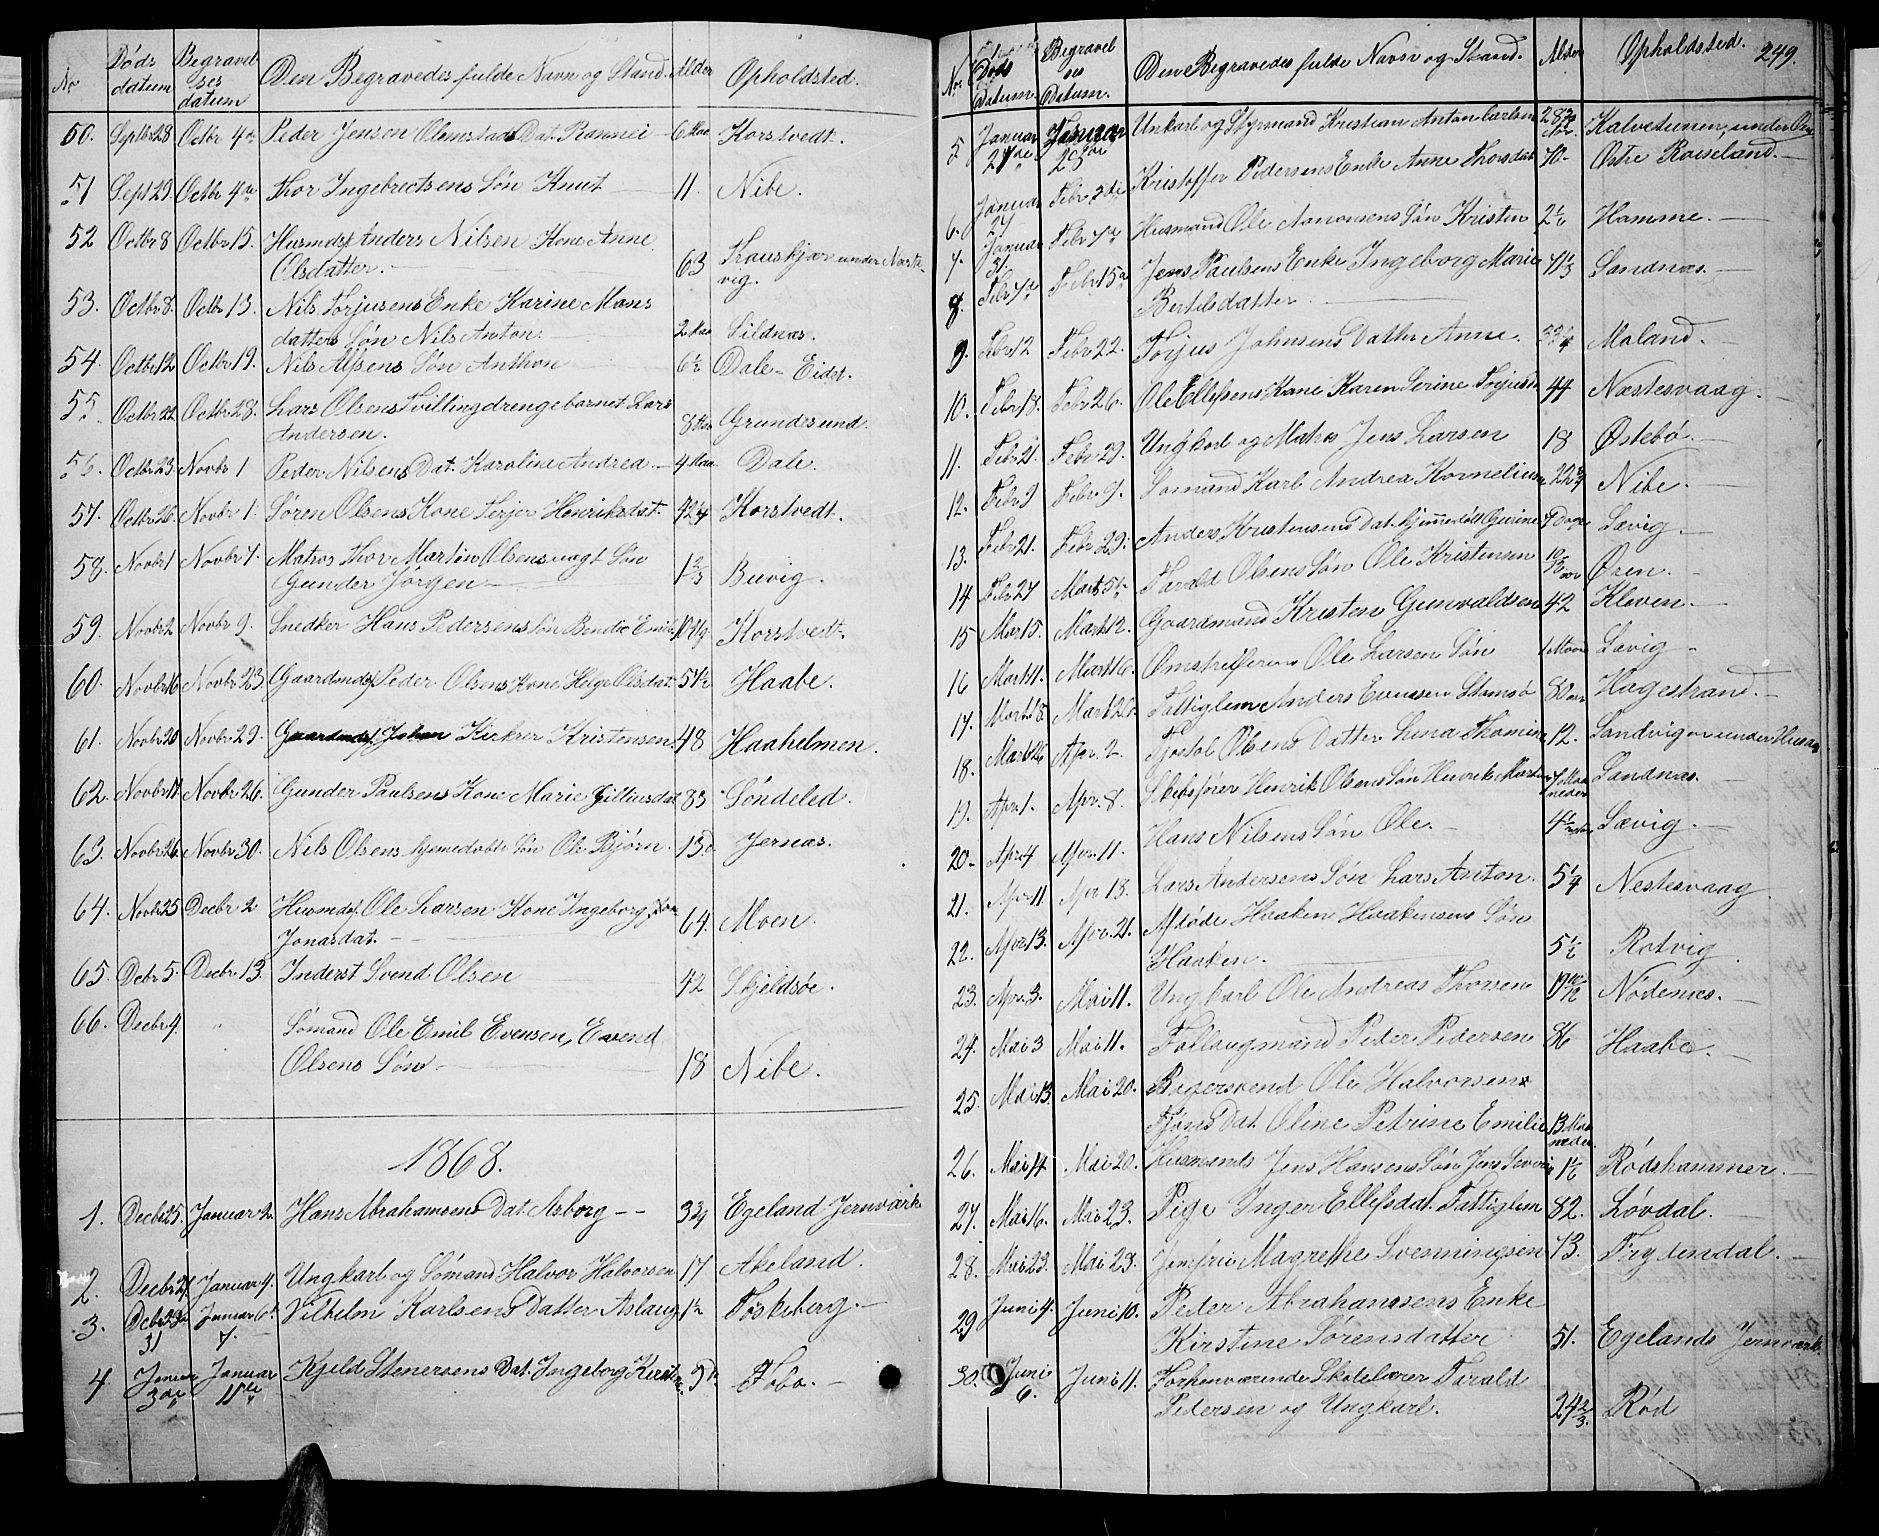 No Döds datum Begravel ses datum Den Begravedes fulde Navn og Stand. Alder Opholdsted.
50. Septbr 28 Octbr 4de Peder Jensen Olmstads Dat. Rannei 6 Maa Korstvedt.
51 Sept 29. Octbr 4de Thor Ingebrectsens Sön Knut 11. Nibe.
52 Octbr 8 Octbr 15. Husmds Anders Nilsen Kone Anne
Olsdatter. 63 under Narte-
vig.
53. Octbr 8. Octbr 13. Nils Torjusens Enke Karine Mons
datters Sön Nils Anton. 2 Maa Sildnæs.
54. Octbr 12 Octbr 19. Nils Alfsens Sön Anthon 6½ Dale-Eidet.
55. Octbr 22 Octbr 28. Lars Olsens Tvillingdrengebarnet Lars
Andersen. 8 Maa Grundesund.
56. Octbr 23. Novbr 1 Peder Nilsens Dat. Karoline Andrea 4 Maa Dale.
57. Octbr 26 Novbr 1. Sören Olsens Kone Terjer Henriksdat. Korstvedt.
58. Novbr 1 Novbr 7. Matros Thor Martin Olsens uægt Sön
Gunder Jorgen 1⅔ Buvig.
59. Novbr 2 Novbr 9. Snedker Hans Pedersens Sön Bendic Emil Korstvedt.
60. Novbr 16 Novbr 23. Gaardmds Peder Olsens Kone Helge Olsdat. 57½ Haabe.
61. Novbr 20 Novbr 29. Kirkver Kristensen 48 Haahelmen.
62. Novbr 17 Novbr 26. Gunder Paalsens Kone Marie Gilliusdat 83 Söndeled.
63. Novbr 26. Novbr 30. Nils Olsens hjemedöbte Sön Ole Björn. 13 D Jernæs.
64. Novbr 25 Decbr 2 Husmds. Ole Larsen Kone Ingeborg
Jonasdat. 64. Moen.
65. Decbr 5. Decbr 13. Inderst Svend Olsen 42 Skjeldsöe.
66. Decbr 9. " Sömand Ole Emil Evensen, Evend
Olsens Sön. 18 Nibe.
1868.
1. Decbr 25. Januar 2. Hans Abrahamsens Dat. Asborg 3¾ Egeland Jernværk
2. Decbr 27. Januar 4. Ungkarl og Sömand Halvor Halvorsen 17 Akeland.
3. Decbr 31 Januar 7. Vilhelm Karlsens Datter Aslaug 1½ Foskeberg.
4. Januar 3de Januar 11te Kjeld Stenersens Dat. Ingeborg Kirstine 9 D Fobo.
No. Döds Datum. Begravel ses Datum. Den Begravedes fulde Navn og Stand. Alder Opholdsted. 249.
5 Januar 21de Januar 28de Unkarl og Styrmand Kristian Anton Carlsen 28 Kalvetunen, under
6. Januar 27 Febr 2de Kristoffer Pedersens Enke Anne Thorsdat 70. Östre Roiseland.
7. Januar 31. Febr 7de Husmand Ole Aanonsens Sön Kristen Hamme.
8. Febr 7de Febr 15de Jens Paulsens Enke Ingeborg Marie
Bertelsdatter 71⅓ Sandnæs.
9. Febr 12 Febr 22. Torjus Johnsens Datter Anne. Moland.
10. Febr 18. Febr 26. Ole Ellefsens Kone Karen Serine 44 Næstesvaag.
11. Febr 21. Febr 29. Ungkarl og Matros Jens Larsen 18 Östebö.
12. Febr 9 Febr 9. Sömand Karl Andrea Kornelius 22 Nibe.
13. Febr 21. Febr 29. Anders Kristensens Dat. hjemmedöbt Gurine 7 Dage Lævig.
14 Febr 27 Marts 5te Tarald Olsens Sön Ole Kristensen Ören.
15 Mar 5. Mart 12. Gaardmand Kristen Gunvaldsen 42 Kleven.
16 Mart 11. Mart 16. Ole Larsen Sön 1 Maan Lævig
17. Mart 18. Mart 26. Fattiglem Anders Evensen 80 Hagestrand.
18. Mart 26 Apr. 2. Tjostol Olsens Datter Lina Thomine 12. Sandvigen under
19. Apr. 1. Apr. 8. Skibsförer Henrik Olsens Sön Henrik Martin 7 Maaneder Sandnæs.
20. Apr. 4 Apr. 11. Hans Nilsens Sön Ole. Lævig.
21. Apr. 11 Apr. 18. Lars Andersens Sön Lars Anton. 5¼ Nestesvaag
22. Apr. 13. Apr. 21. Afdöde Haaken Haakensens Sön
Haaken. 5½ Rotvig
23. Apr. 3. Mai 11. Ungkarl Ole Andreas Thorsen 19 Nödenæs.
24. Mai 3 Mai 11. Follaugmand Peder Pedersen 86 Haabe.
25. Mai 13. Mai 20. Bagersvend Ole Halvorsens
Dat. Oline Petrine Emilie 13 Maaneder.
26. Mai 14 Mai 20. Husmands Jens Hansens Sön Jens Severin 1½ Rödshammer.
27. Mai 16. Mai 23. Pige Inger Ellefsdat. Fattiglem 82. Lövdal.
28. Mai 23. Mai 29. Jomfru Magrethe Svenningsen 73. Frydendal.
29 Juni 4. Juni 10. Peder Abrahamsens Enke
Kirstine Sörensdatter 51. Egelands Jernværk
30. Juni 6. Juni 11. Forhenværende Skolelærer Tarald
Pedersen og Ungkarl. 24⅔. Röd